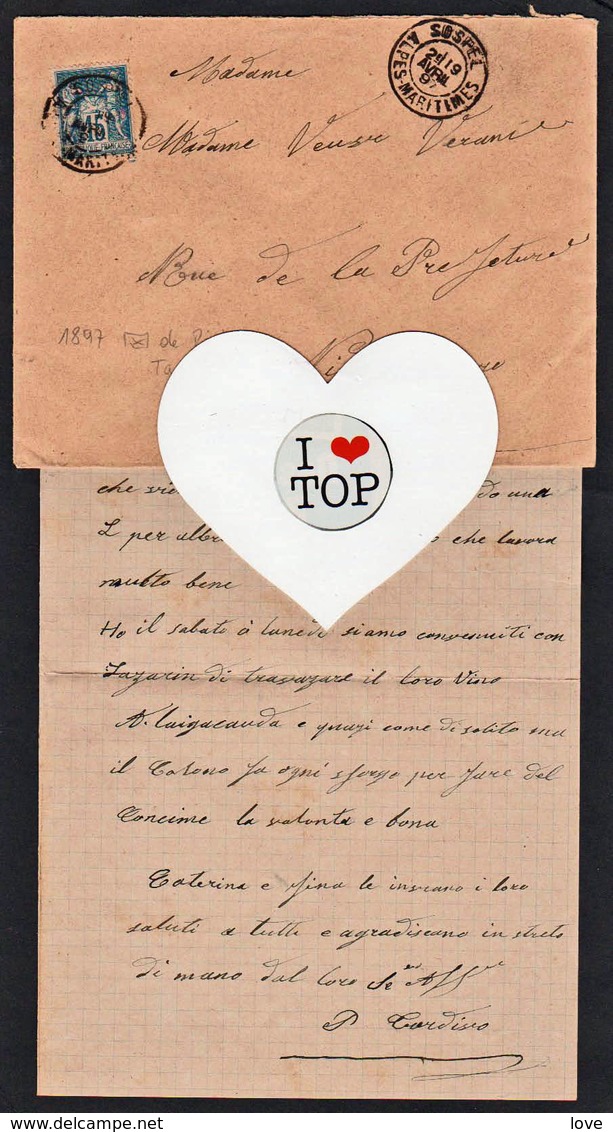 SOSPEL
2E 19
AVRIL
97
ALPES-MARITIMES
Madame
Madame Veuve Verani
Rue de la Prefeture
1897 de
I ❤
TOP
una
L per che lavora
molto bene
Ho il sabato o lunedi siamo convenuiti con
Lazarin di travazare il loro vino
A. laigacauda e quazi come di solito ma
il Colono fa ogni sforzo per fare del
Concime la volonta e bona
Caterina e fina le inviano i loro
saluti a tutti e agradiscano in streto
di mano dal loro
P Cordivo
love
delcampe.net